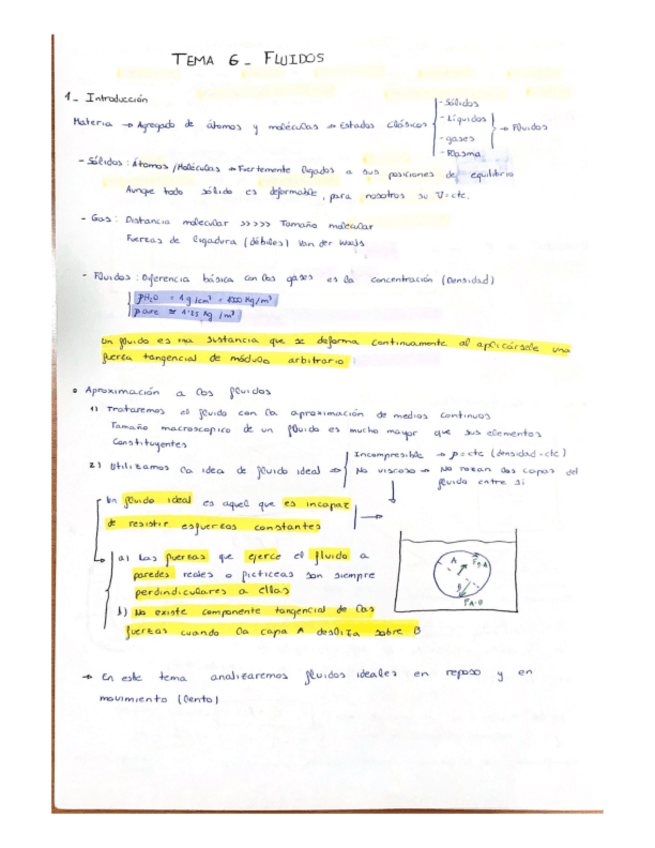 TEMA 6_ FLUIDOS
1_ Introducción
Materia → Agregado de átomos y moléculas → Estados Clásicos
- Sólidos
- Líquidos
- gases
- Plasma
→ Fluidos
- Sólidos: Átomos/Moléculas → Fuertemente ligados a sus posiciones de equilibrio
Aunque todo sólido es deformable, para nosotros su V=cte.
- Gas: Distancia molecular >>>>> Tamaño molecular
Fuerzas de ligadura (débiles) Van der Waals
- Fluidos: Diferencia básica con los gases es la concentración (Densidad)
ρH₂O = 1 g/cm³ = 1000 Kg/m³
ρaire ≈ 1'25 Kg/m³
Un fluido es una sustancia que se deforma continuamente al aplicársele una
fuerza tangencial de módulo arbitrario
• Aproximación a los fluidos
1) Trataremos el fluido con la aproximación de medios continuos
Tamaño macroscopico de un fluido es mucho mayor que sus elementos
Constituyentes
2) Utilizamos la idea de fluido ideal →
Incompresible → ρ=cte (densidad=cte)
No viscoso → No rozan las capas del
fluido entre sí
Un fluido ideal es aquel que es incapaz
de resistir esfuerzos constantes
→
a) Las fuerzas que ejerce el fluido a
paredes reales o ficticeas son siempre
perdindiculares a ellas
b) No existe componente tangencial de las
fuerzas cuando la capa A desliza sobre B
A
FB-A
B
FA-B
→ En este tema analizaremos fluidos ideales en reposo y en
movimiento (lento)